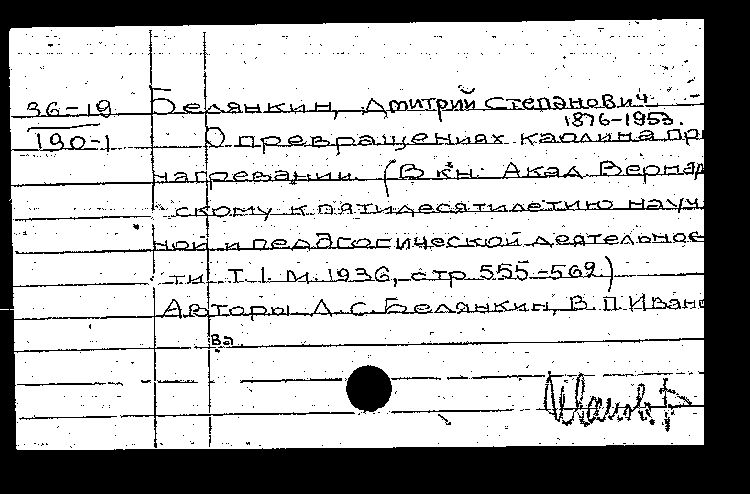 36-19 Белянкин, Дмитрий Степанович
1876-1953.
190-1 О превращениях каолина при
нагревании. (В кн. Акад Вернад
скому к пятидесятилетию науч
ной и педагогической деятельнос
ти Т. I. М. 1936, стр 555-569)
Авторы Д. С. Белянкин, В. П. Ивано
ва
Иванов. Г